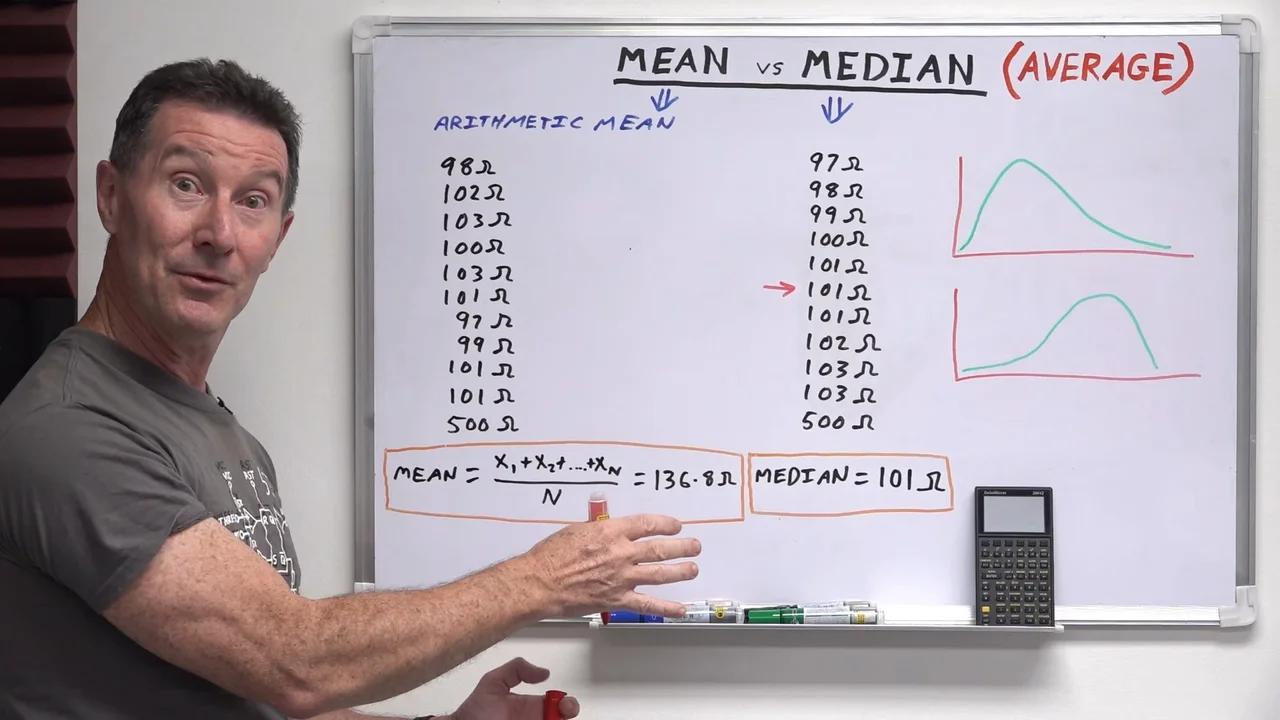 MEAN vs MEDIAN (AVERAGE)
⇓ ⇓
ARITHMETIC MEAN
98Ω
102Ω
103Ω
100Ω
103Ω
101Ω
97Ω
99Ω
101Ω
101Ω
500Ω
MEAN = X₁+X₂+....+X_N / N = 136.8Ω
97Ω
98Ω
99Ω
100Ω
101Ω
→ 101Ω
101Ω
102Ω
103Ω
103Ω
500Ω
MEDIAN = 101Ω